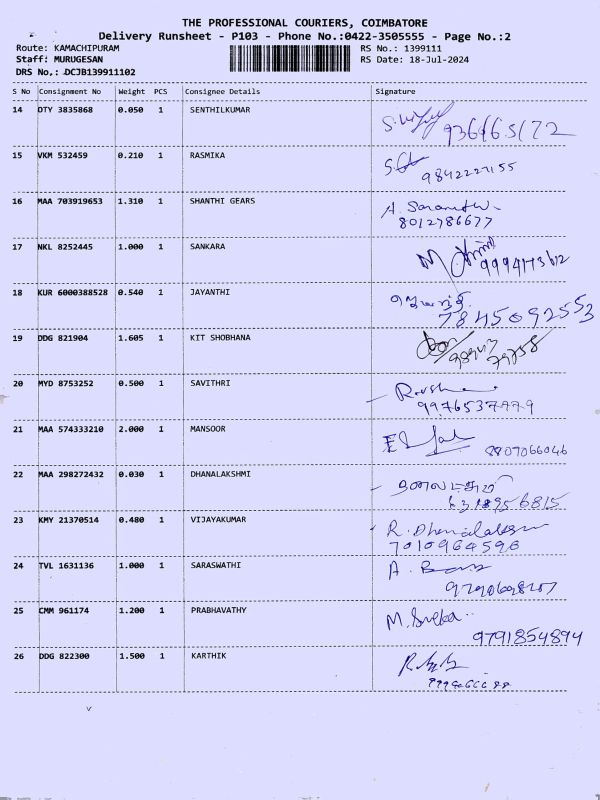 THE PROFESSIONAL COURIERS, COIMBATORE
Delivery Runsheet - P103 - Phone No.:0422-3505555 - Page No.:2
Route: KAMACHIPURAM RS No.: 1399111
Staff: MURUGESAN RS Date: 18-Jul-2024
DRS No.: DCJB139911102
S No Consignment No Weight PCS Consignee Details Signature
14 DTY 3835868 0.050 1 SENTHILKUMAR
15 VKM 532459 0.210 1 RASMIKA
9842227155
16 MAA 703919653 1.310 1 SHANTHI GEARS
8012786677
17 NKL 8252445 1.000 1 SANKARA
9994173612
18 KUR 6000388528 0.540 1 JAYANTHI
7845092553
19 DDG 821904 1.605 1 KIT SHOBHANA
20 MYD 8753252 0.500 1 SAVITHRI
21 MAA 574333210 2.000 1 MANSOOR
8807066046
22 MAA 298272432 0.030 1 DHANALAKSHMI
23 KMY 21370514 0.480 1 VIJAYAKUMAR
7010964596
24 TVL 1631136 1.000 1 SARASWATHI
25 CMM 961174 1.200 1 PRABHAVATHY
9791854894
26 DDG 822300 1.500 1 KARTHIK